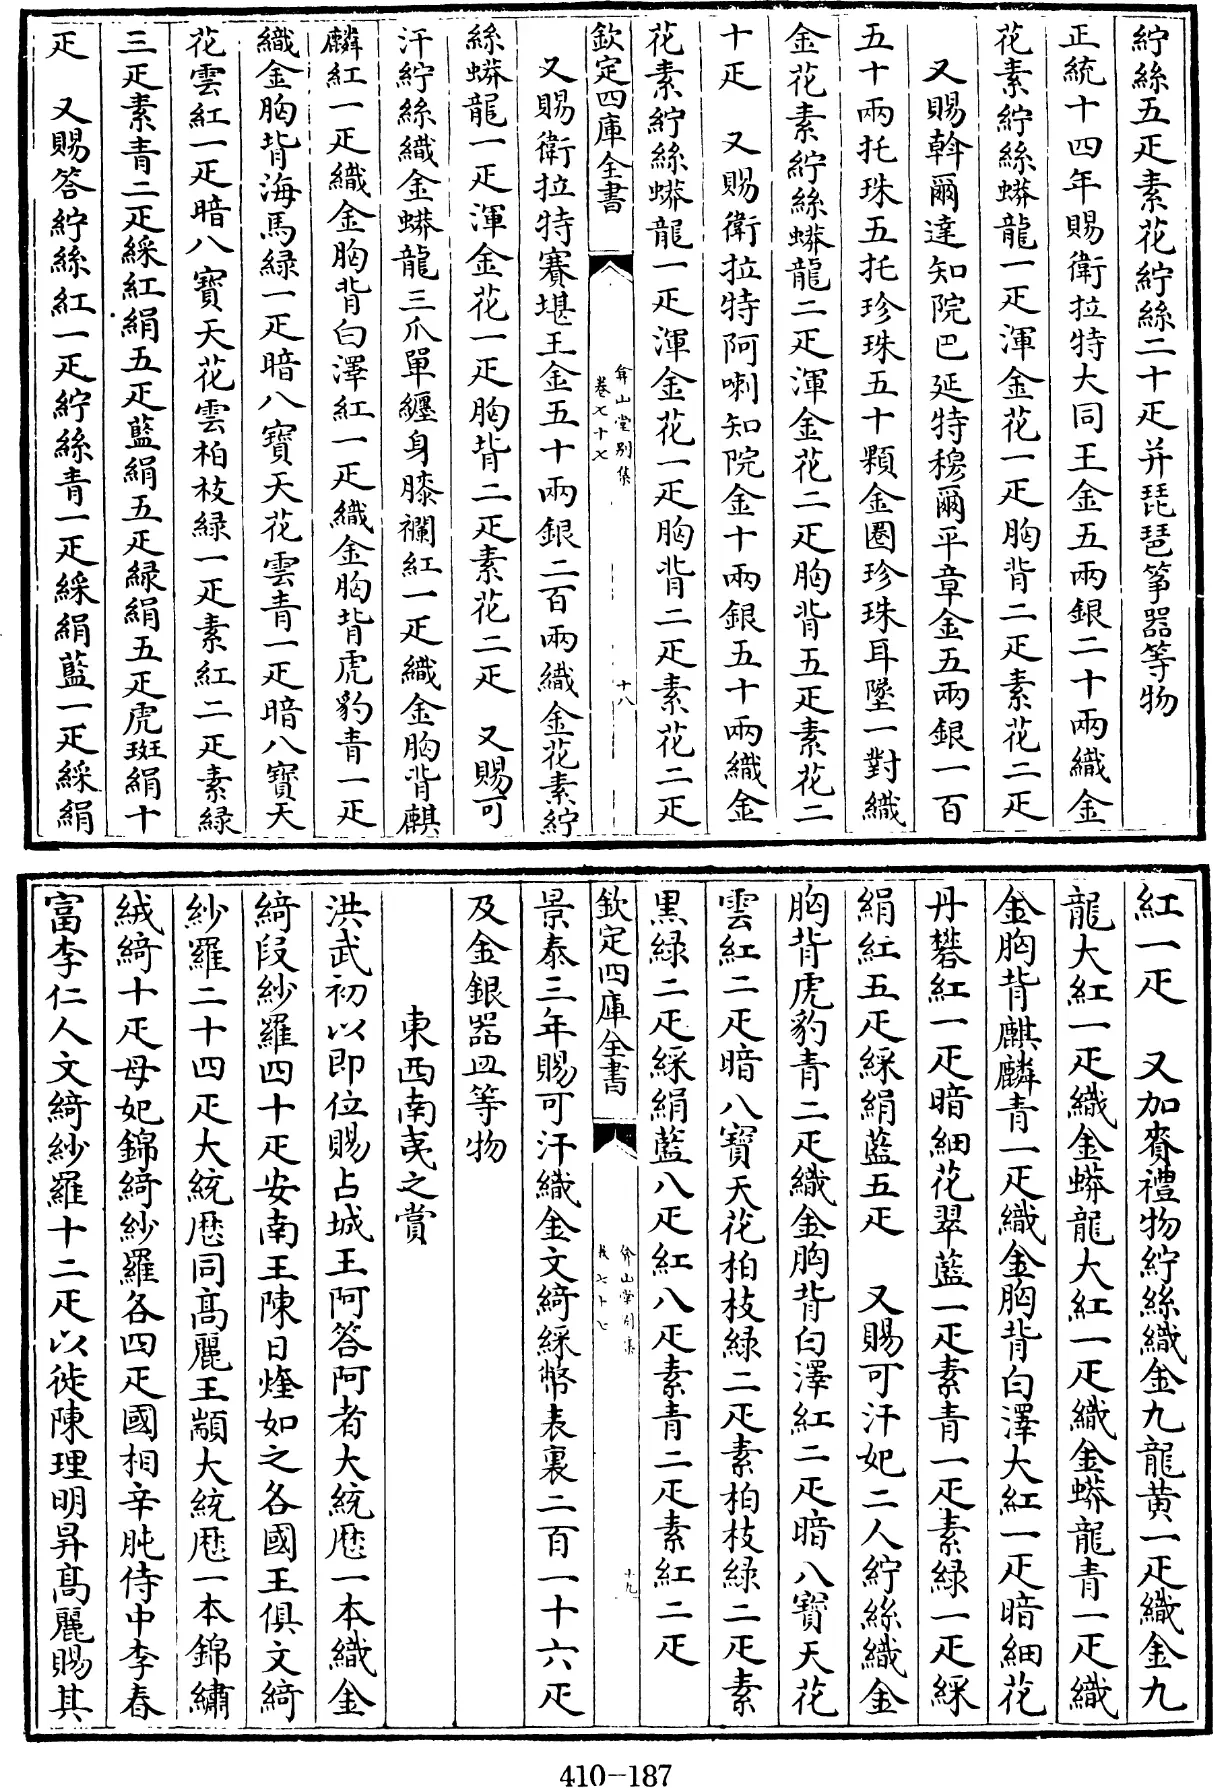 紵絲五疋素花紵絲二十疋并琵琶箏器等物
正統十四年賜衛拉特大同王金五兩銀二十兩織金
花素紵絲蟒龍一疋渾金花一疋胸背二疋素花二疋
又賜斡爾達知院巴延特穆爾平章金五兩銀一百
五十兩托珠五托珍珠五十顆金圈珍珠耳墜一對織
金花素紵絲蟒龍二疋渾金花二疋胸背五疋素花二
十疋 又賜衛拉特阿喇知院金十兩銀五十兩織金
花素紵絲蟒龍一疋渾金花一疋胸背二疋素花二疋
欽定四庫全書
弇山堂別集
卷七十七
十八
又賜衛拉特賽堪王金五十兩銀二百兩織金花素紵
絲蟒龍一疋渾金花一疋胸背二疋素花二疋 又賜可
汗紵絲織金蟒龍三爪單纏身膝襴紅一疋織金胸背麒
麟紅一疋織金胸背白澤紅一疋織金胸背虎豹青一疋
織金胸背海馬緑一疋暗八寶天花雲青一疋暗八寶天
花雲紅一疋暗八寶天花雲柏枝緑一疋素紅二疋素緑
三疋素青二疋綵紅絹五疋藍絹五疋緑絹五疋虎斑絹十
疋 又賜答紵絲紅一疋紵絲青一疋綵絹藍一疋綵絹
紅一疋 又加賚禮物紵絲織金九龍黄一疋織金九
龍大紅一疋織金蟒龍大紅一疋織金蟒龍青一疋織
金胸背麒麟青一疋織金胸背白澤大紅一疋暗細花
丹礬紅一疋暗細花翠藍一疋素青一疋素緑一疋綵
絹紅五疋綵絹藍五疋 又賜可汗妃二人紵絲織金
胸背虎豹青二疋織金胸背白澤紅二疋暗八寶天花
雲紅二疋暗八寶天花柏枝緑二疋素柏枝緑二疋素
黒緑二疋綵絹藍八疋紅八疋素青二疋素紅二疋
欽定四庫全書
弇山堂别集
卷七十七
十九
景泰三年賜可汗織金文綺綵幣表裏二百一十六疋
及金銀器皿等物
東西南夷之賞
洪武初以即位賜占城王阿答阿者大統厯一本織金
綺段紗羅四十疋安南王陳日煃如之各國王俱文綺
紗羅二十四疋大統厯同高麗王顓大統厯一本錦繡
絨綺十疋母妃錦綺紗羅各四疋國相辛肫侍中李春
富李仁人文綺紗羅十二疋以徙陳理明昇高麗賜其
410-187